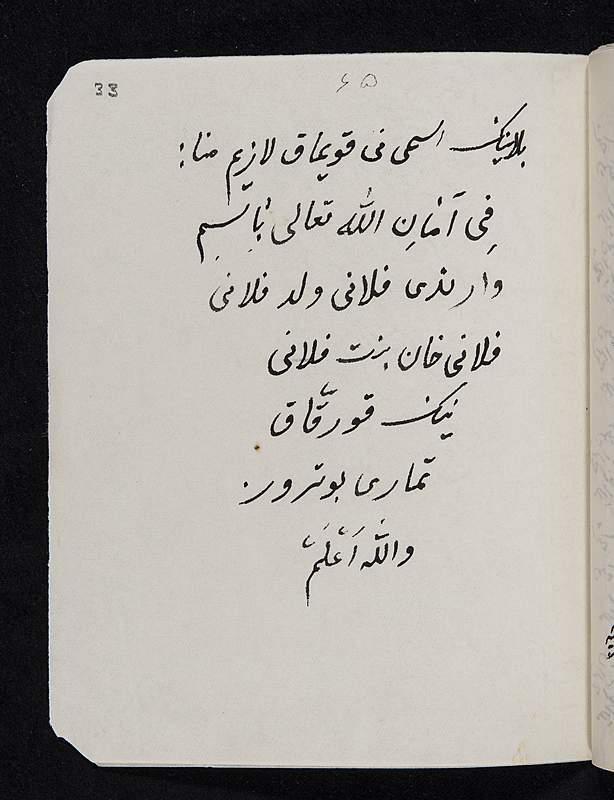 33
۶۵
بلانینک اسمی نی قویماق لازیم منا:
فِی آمَانِ اللّٰه تعالی
وار یدی فلانی ولد فلانی
فلانی خان بنت فلانی
نینک قورقاق
تماری بوترور.
واللّٰهُ اَعْلَمْ